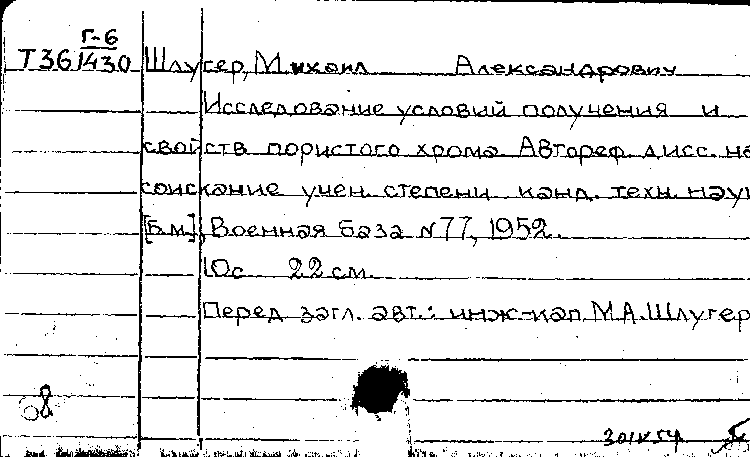 Г-6
Т36/1430 Шлугер, Михаил Александрович
Исследование условий получения и
свойств пористого хрома Автореф. дисс. на
соискание учен. степени канд. техн. наук
[Б.м.], Военная база №77, 1952.
10с 22 см.
Перед загл. авт.: инж-кап. М.А. Шлугер